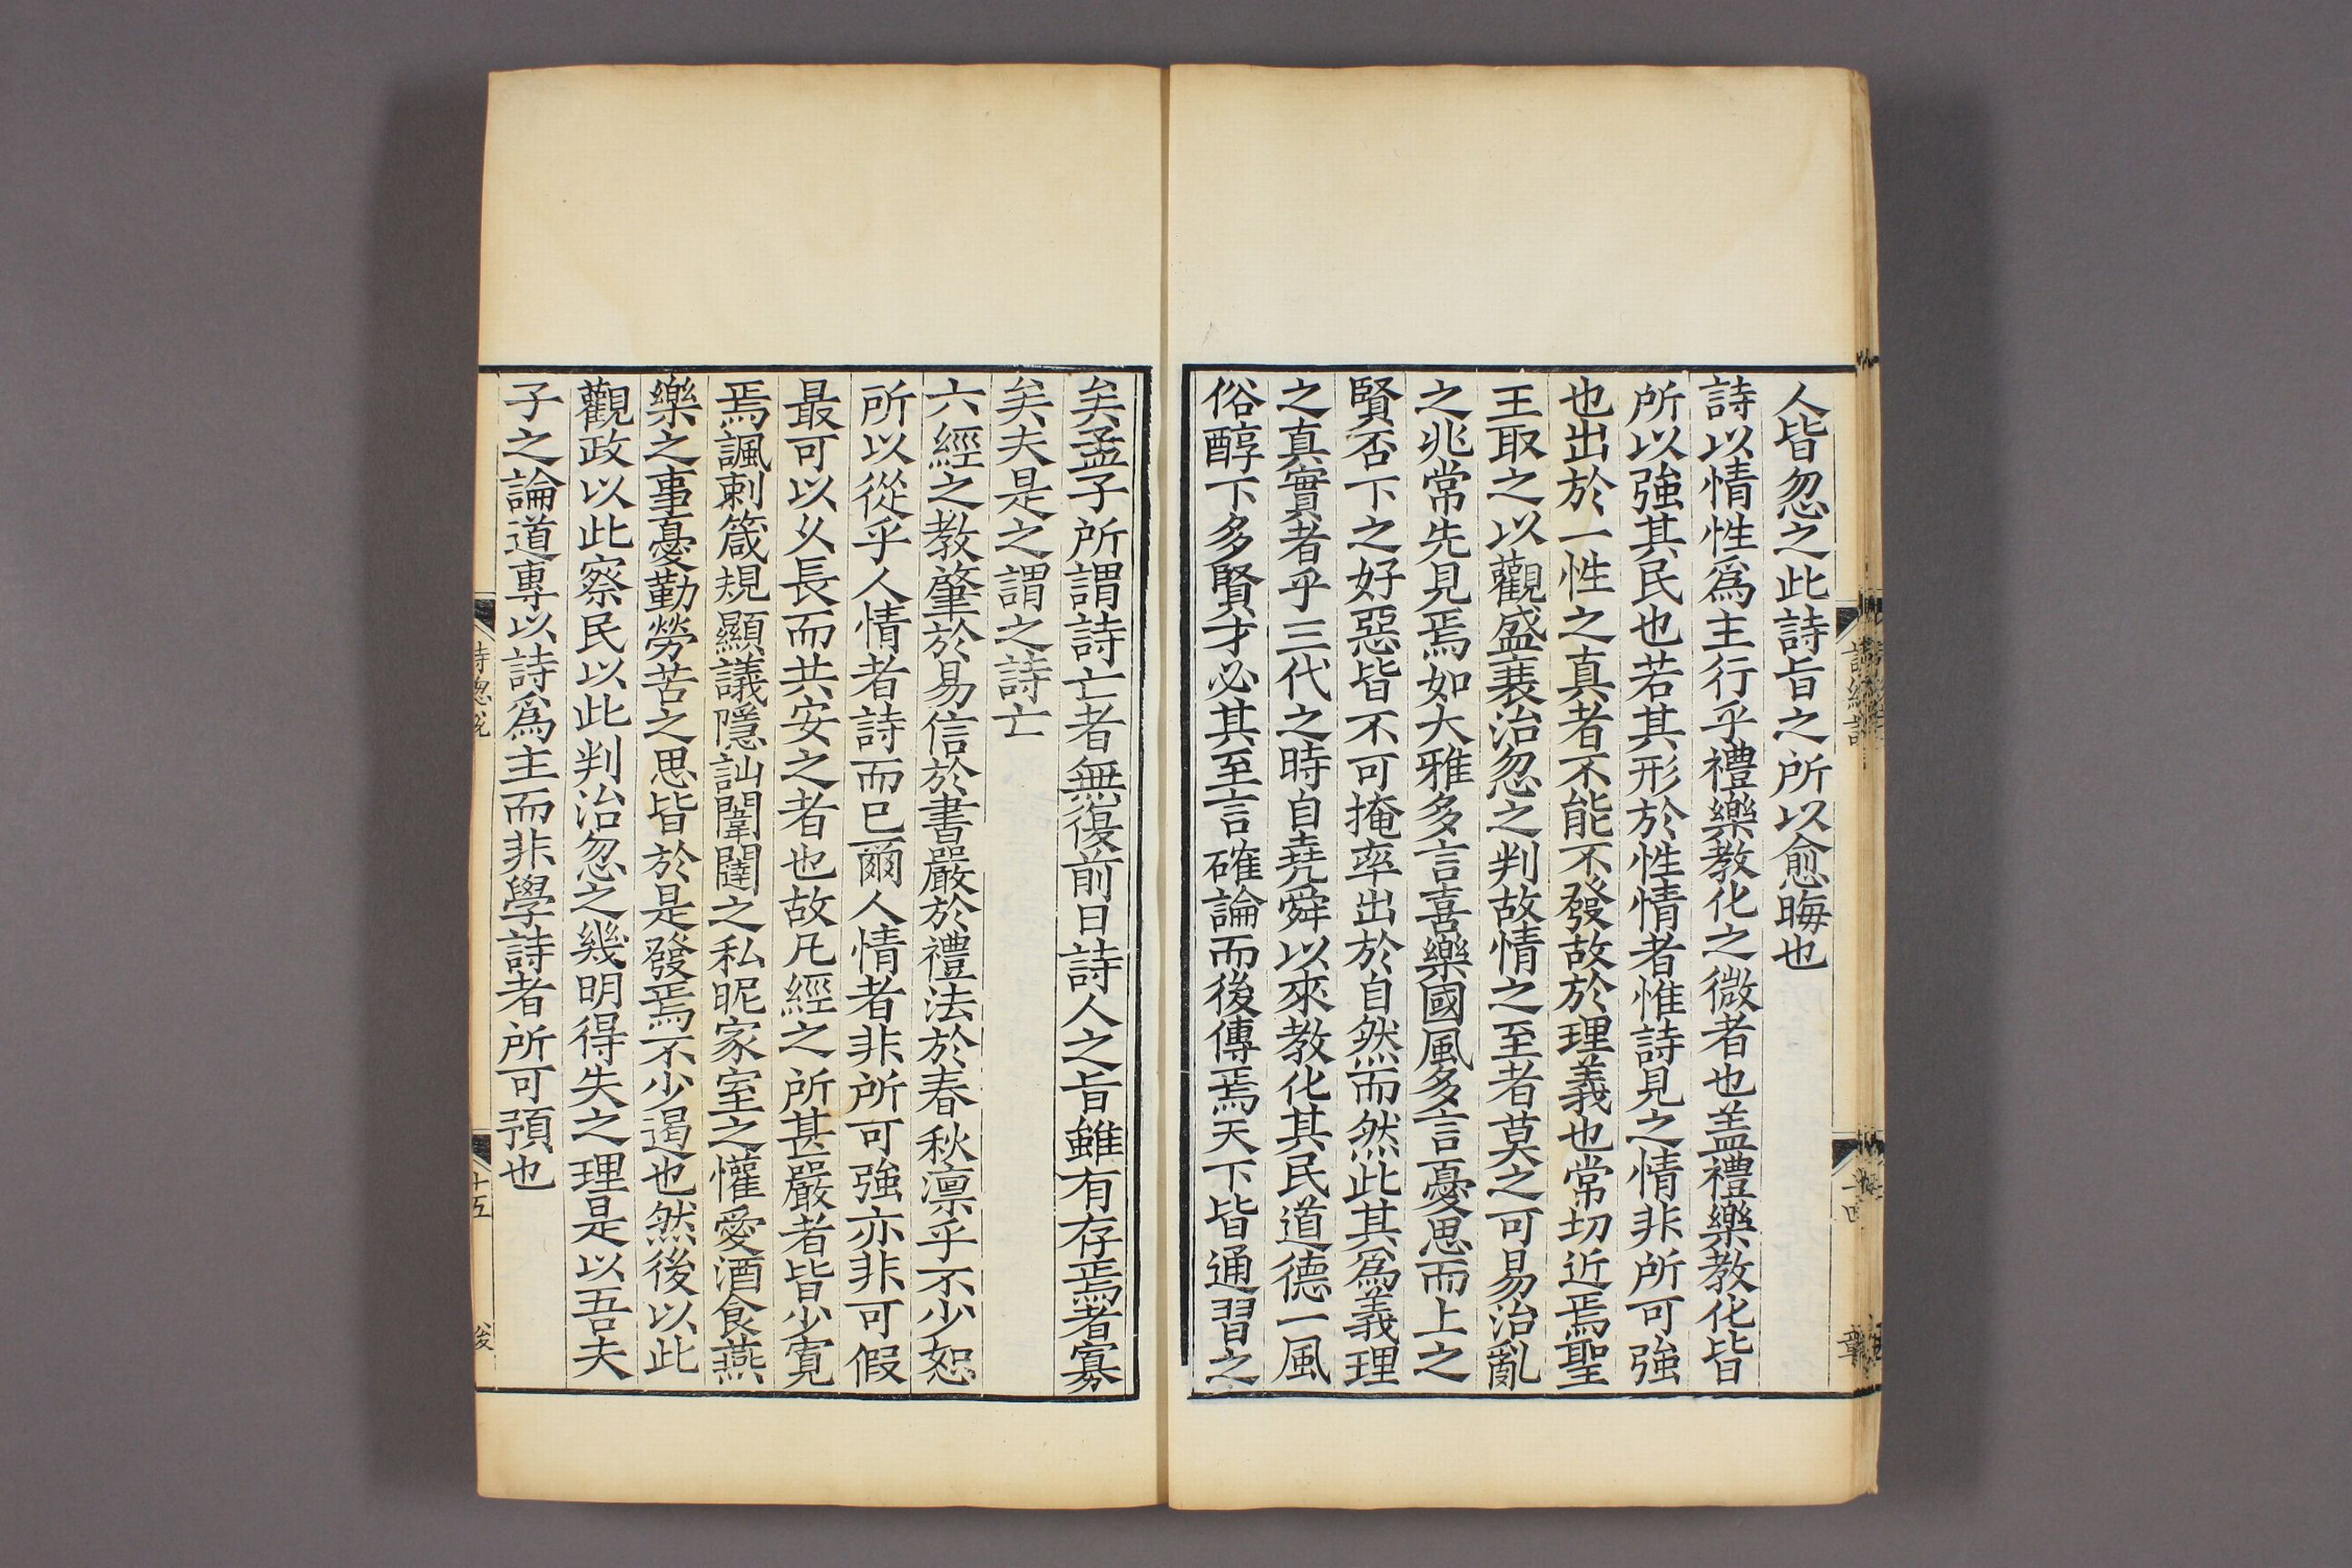 人皆忽之此詩旨之所以愈晦也
詩以情性爲主行乎禮樂教化之微者也盖禮樂教化皆
所以強其民也若其形於性情者惟詩見之情非所可強
也出於一性之真者不能不發故於理義也常切近焉聖
王取之以觀盛衰治忽之判故情之至者莫之可易治亂
之兆常先見焉如大雅多言喜樂國風多言憂思而上之
賢否下之好惡皆不可掩率出於自然而然此其爲義理
之真實者乎三代之時自堯舜以來教化其民道德一風
俗醇下多賢才必其至言確論而後傳焉天下皆通習之
矣孟子所謂詩亡者無復前日詩人之旨雖有存焉者寡
矣夫是之謂之詩亡
六經之教肇於易信於書嚴於禮法於春秋凛乎不少恕
所以從乎人情者詩而已爾人情者非所可強亦非可假
最可以乆長而共安之者也故凡經之所甚嚴者皆少寛
焉諷刺箴規顯議隱訕闈闥之私昵家室之懽愛酒食燕
樂之事憂勤勞苦之思皆於是發焉不少遏也然後以此
觀政以此察民以此判治忽之幾明得失之理是以吾夫
子之論道專以詩爲主而非學詩者所可預也
詩總説
十五